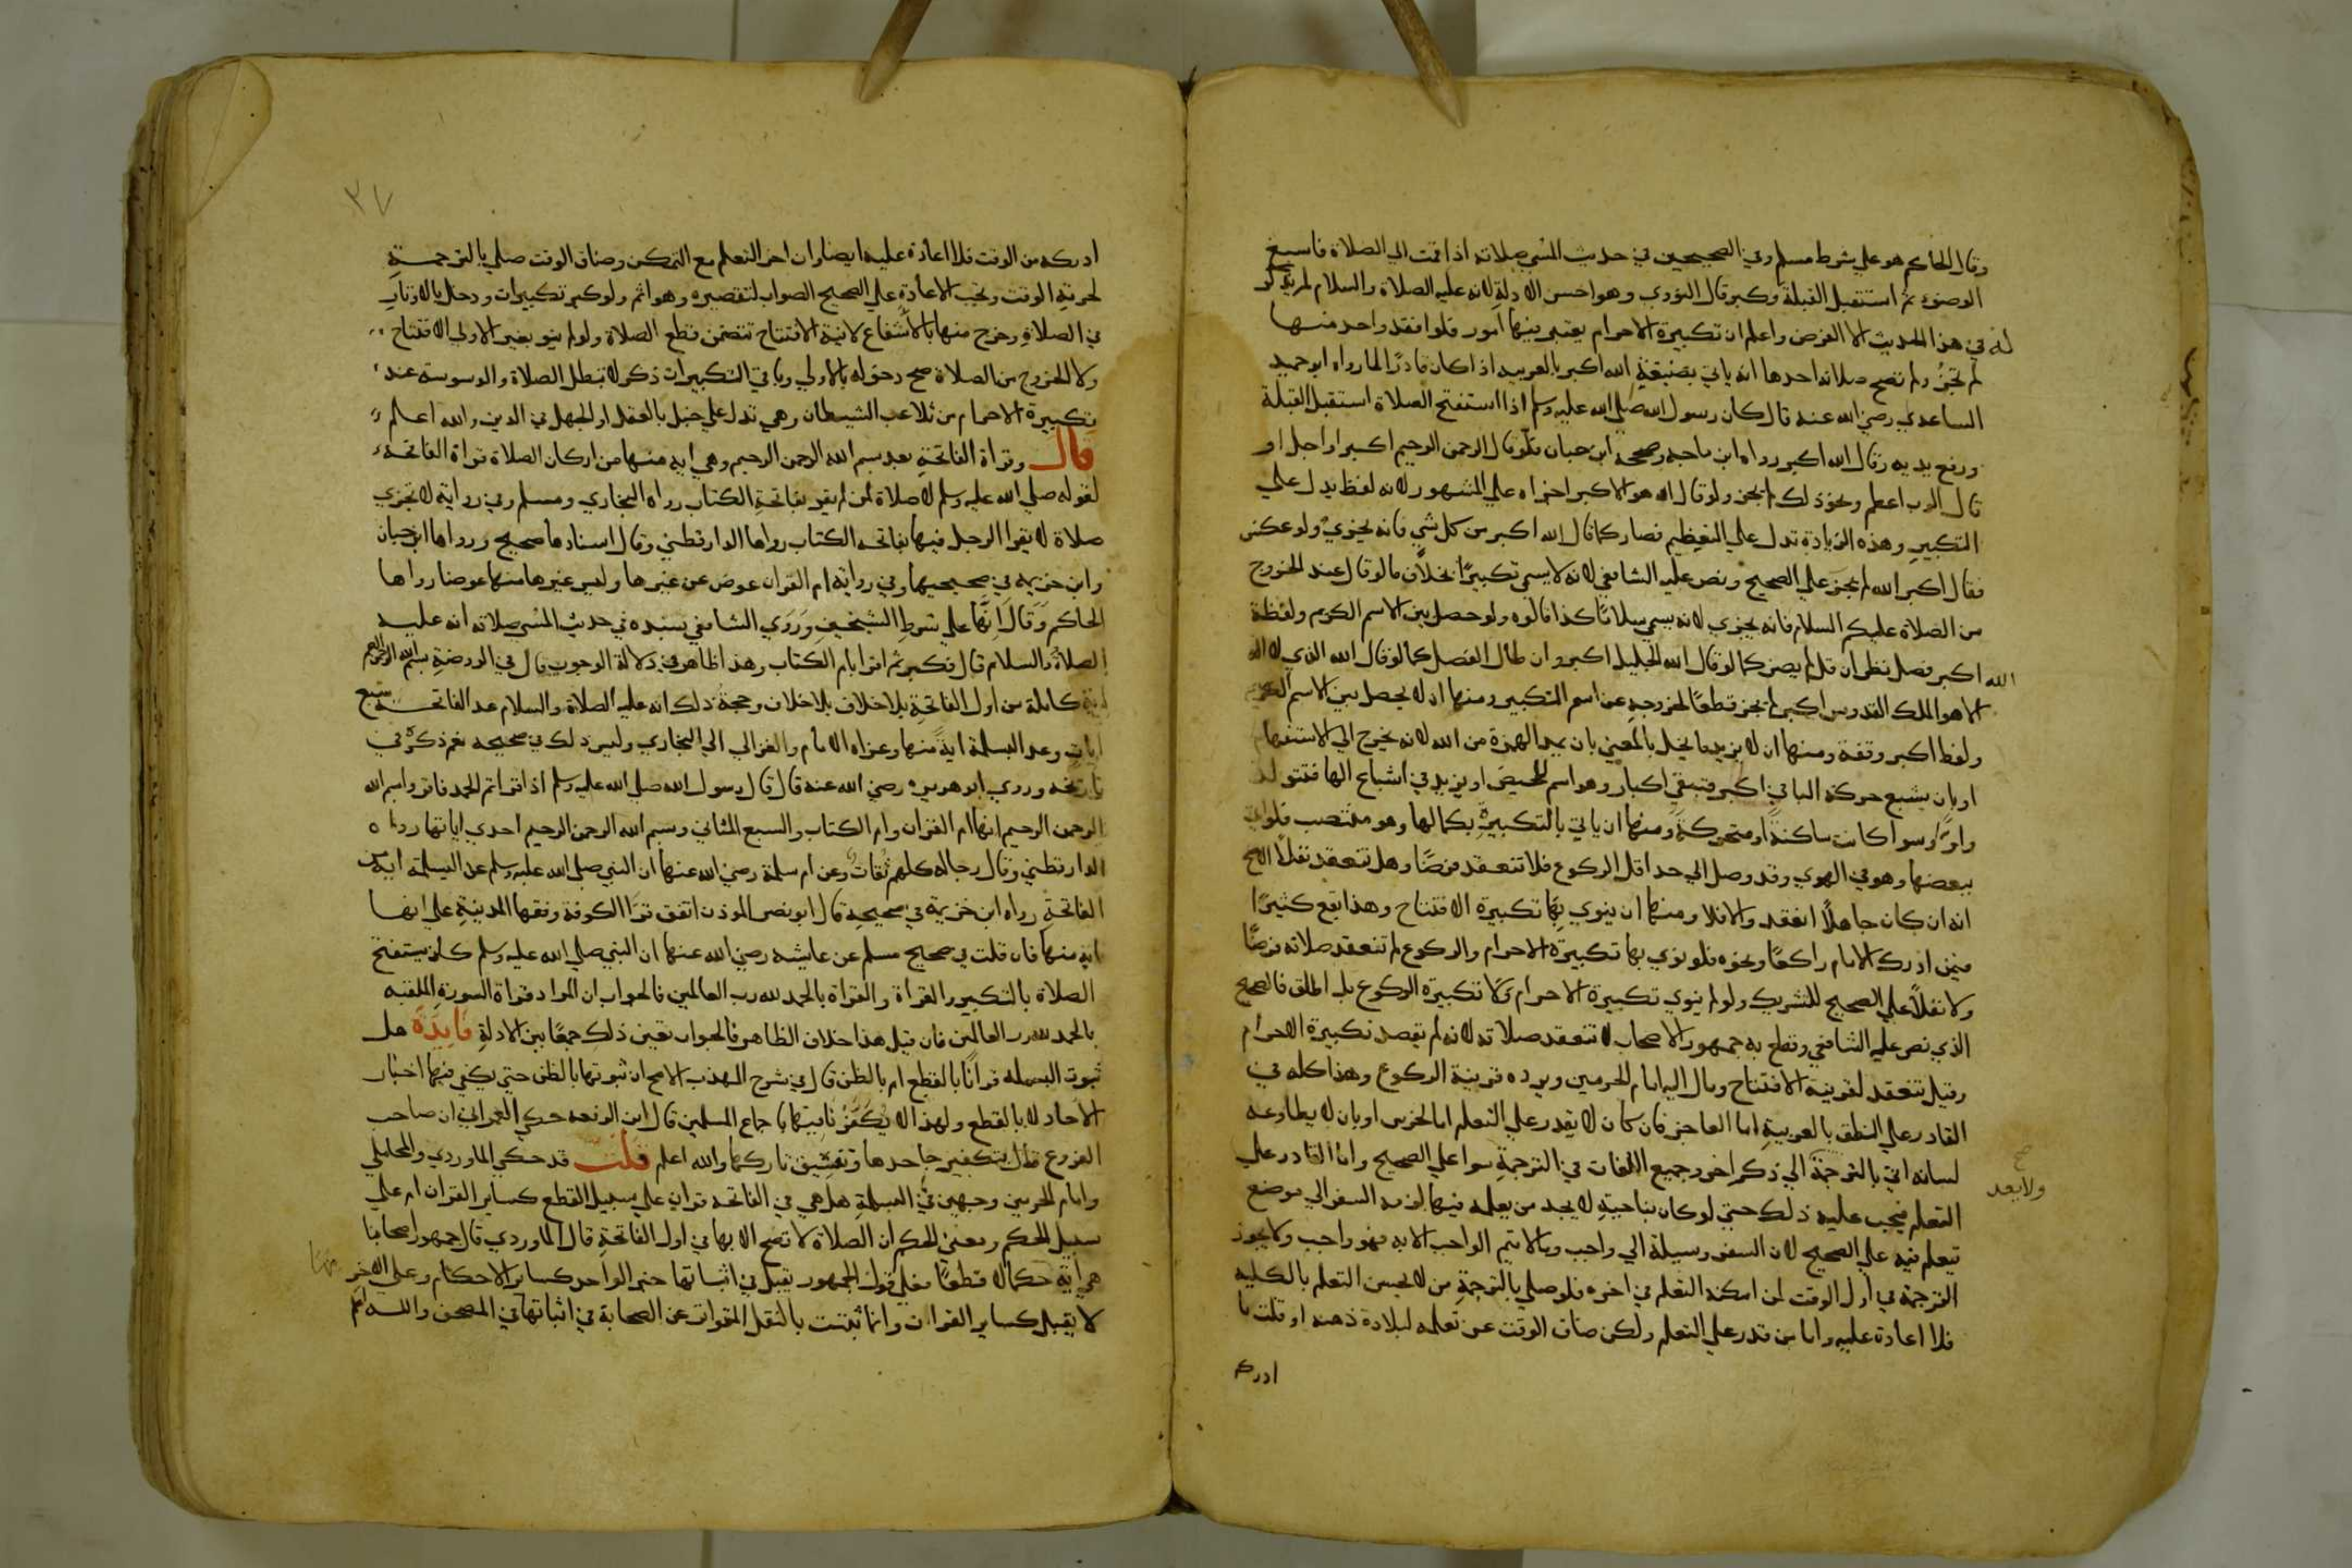 وقال الحاكم هو علي شرط مسلم وفي الصحيحين في حديث المسي صلاته اذا قمت الي الصلاة فاسبغ
الوضوء ثم استقبل القبلة وكبر قال النووي وهو احسن الادلة لانه عليه الصلاة والسلام لم يذكر
له في هذا الحديث الا الفرض واعلم ان تكبيرة الاحرام يعتبر فيها امور فلو فقد واحد منها
لم تجز ولم تصح صلاته احدها انه ياتي بصيغة الله اكبر بالعربيه اذا كان قادرًا لما رواه ابو حميد
الساعدي رضي الله عنه قال كان رسول الله صلي الله عليه وسلم اذا استفتح الصلاة استقبل القبلة
ورفع يديه وقال الله اكبر رواه ابن ماجه وصححه ابن حبان فلو قال الرحمن الرحيم اكبر او اجل او
قال الرب اعظم ونحو ذلك لم يجز ولو قال الله هو الاكبر اجزاه علي المشهور لانه لفظ يدل علي
التكبير وهذه الزيادة تدل علي التعظيم فصار كما قال الله اكبر من كل شي فانه يجزي ولو عكس
فقال اكبر الله لم يجز علي الصحيح ونص عليه الشافعي لانه لا يسمي تكبيرًا بخلاف ما لو قال عند الخروج
من الصلاة عليكم السلام فانه يجزي لانه يسمي سلامًا كذا قالوه ولو حصل بين الاسم الكريم ولفظة
الله اكبر فصل نظر ان قل لم يضر كما لو قال الله الجليل اكبر وان طال الفصل كما لو قال الله الذي لا اله
الا هو الملك القدوس اكبر لم يجز قطعًا لخروجه عن اسم التكبير ومنها ان لا يحصل بين الاسم الكريم
ولفظ اكبر وقفة ومنها ان لا يزيد ما يخل بالمعني بان يمد الهمزة من الله لانه يخرج الي الاستفهام
او بان يشبع حركة الباء في اكبر فتبقي اكبار وهو اسم للحيض او يزيد في اشباع الها فتتولد
واوًا وسوا كانت ساكنةً او متحركةً ومنها ان ياتي بالتكبيرة بكمالها وهو منتصب فلو اتي
ببعضها وهو في الهوي وقد وصل الي حد اقل الركوع فلا تنعقد فرضًا وهل تنعقد نفلًا الاصح
انه ان كان جاهلًا انعقد والا فلا ومنها ان ينوي بها تكبيرة الافتتاح وهذا يقع كثيرًا
فيمن ادرك الامام راكعًا ونحوه فلو نوي بها تكبيرة الاحرام والركوع لم تنعقد صلاته فرضًا
ولا نفلًا علي الصحيح للتشريك ولو لم ينوي تكبيرة الاحرام ولا تكبيرة الركوع بل اطلق فالصحيح
الذي نص عليه الشافعي وقطع به جمهور الاصحاب لا تنعقد صلاته لانه لم يقصد تكبيرة الاحرام
وقيل تنعقد لقرينة الافتتاح ومال اليه امام الحرمين ويرده قرينة الركوع وهذا كله في
القادر علي النطق بالعربية اما العاجز فان كان لا يقدر علي التعلم اما لخرس او بان لا يطاوعه
لسانه اتي بالترجمة الي ذكر اخر وجميع اللغات في الترجمة سوا علي الصحيح واما القادر علي
صح
ولا يعد
التعلم فيجب عليه ذلك حتي لو كان بناحية لا يجد من يعلمه فيها لزمه السفر الي موضع
يتعلم فيه علي الصحيح لان السفر وسيلة الي واجب وما لا يتم الواجب الا به فهو واجب ولا يجوز
الترجمة في اول الوقت لمن امكنه التعلم في اخره فلو صلي بالترجمة من لا يحسن التعلم بالكليه
فلا اعادة عليه واما من قدر علي التعلم ولكن ضاق الوقت عن تعلمه لبلادة ذهنه او قلت ما
ادركه
٣٧
ادركه من الوقت فلا اعادة عليه ايضا وان اخر التعلم مع التمكن وضاق الوقت صلي بالترجمة
لحرمة الوقت وتجب الاعادة علي الصحيح الصواب لتقصيره وهو اثم ولو كبر تكبيرات ودخل بالاوتار
في الصلاة وخرج منها بالاشفاع لانية الافتتاح تتضمن قطع الصلاة ولو لم ينو بغير الاولي الافتتاح
ولا الخروج من الصلاة صح دخوله بالاولي وباقي التكبيرات ذكر لا تبطل الصلاة والوسوسه عند
تكبيرة الاحرام من تلاعب الشيطان وهي تدل علي خبل بالعقل او الجهل في الدين والله اعلم
قال وقراة الفاتحة بعد بسم الله الرحمن الرحيم وهي ايه منها من اركان الصلاة قراة الفاتحة
لقوله صلي الله عليه وسلم لا صلاة لمن لم يقرا بفاتحة الكتاب رواه البخاري ومسلم وفي رواية لا تجزي
صلاة لا يقرا الرجل فيها بفاتحه الكتاب رواها الدارقطني وقال اسنادها صحيح ورواها ابن حبان
وابن خزيمه في صحيحيهما وفي رواية ام القران عوض عن غيرها وليس غيرها منها عوضا رواها
الحاكم وقال انها علي شرط الشيخين وروي الشافعي بسنده في حديث المسي صلاته انه عليه
الصلاة والسلام قال فكبر ثم اقرا بام الكتاب وهذا ظاهر في دلالة الوجوب قال في الروضة بسم الله الرحمن الرحيم
اية كاملة من اول الفاتحة بلا خلاف بلا خلاف وحجة ذلك انه عليه الصلاة والسلام عد الفاتحة سبع
ايات وعد البسملة ايةً منها وعزاه الامام والغزالي الي البخاري وليس ذلك في صحيحه نعم ذكره في
تاريخه وروي ابو هريره رضي الله عنه قال قال رسول الله صلي الله عليه وسلم اذا قراتم الحمد فاقروا بسم الله
الرحمن الرحيم انها ام القران وام الكتاب والسبع المثاني وبسم الله الرحمن الرحيم احدي اياتها رواه
الدارقطني وقال رجاله كلهم ثقات وعن ام سلمة رضي الله عنها ان النبي صلي الله عليه وسلم عد البسملة اية من
الفاتحة رواه ابن خزيمة في صحيحه قال ابو نصر الموذن اتفق قرا الكوفة وفقها المدينة علي انها
اية منها فان قلت في صحيح مسلم عن عايشه رضي الله عنها ان النبي صلي الله عليه وسلم كان يستفتح
الصلاة بالتكبير والقراة والقراة بالحمد لله رب العالمين فالجواب ان المراد قراة السورة الملقبه
بالحمد لله رب العالمين فان قيل هذا خلاف الظاهر فالجواب تعين ذلك جمعًا بين الادلة فايدة هل
ثبوت البسمله قرانًا بالقطع ام بالظن قال في شرح المهذب الاصح ان ثبوتها بالظن حتي يكفي فيها اخبار
الاحاد لا بالقطع ولهذا لا يكفر نافيها باجماع المسلمين قال ابن الرفعه حكي العمراني ان صاحب
الفروع قال بتكفير جاحدها وتفسيق تاركها والله اعلم قلت قد حكي الماوردي والمحاملي
وامام الحرمين وجهين في البسملة هل هي في الفاتحه قران علي سبيل القطع كساير القران ام علي
سبيل الحكم ومعني الحكم ان الصلاة لا تصح الا بها في اول الفاتحة قال الماوردي قال جمهور اصحابنا
هي اية حكما لا قطعًا فعلي قول الجمهور يقبل في اثباتها خبر الواحد كساير الاحكام وعلي الاخر
لا يقبل كساير القران وانما ثبتت بالنقل المتواتر عن الصحابة في اثباتها في المصحف والله اعلم